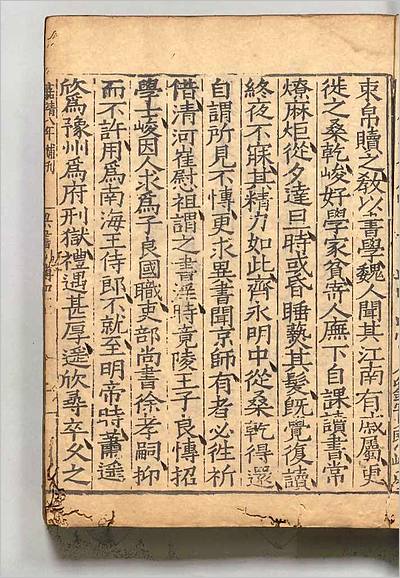 束帛贖之敎以書學魏人聞其江南有戚屬更
徙之桑乾峻好學家貧寄人廡下自課讀書常
燎麻炬從夕達旦時或昏睡爇其髮旣覺復讀
終夜不寐其精力如此齊永明中從桑乾得還
自謂所見不博更求異書聞京師有者必往祈
借清河崔慰祖謂之書淫時竟陵王子良博招
學士峻因人求爲子良國職吏部尚書徐孝嗣抑
而不許用爲南海王侍郎不就至明帝時蕭遥
欣爲豫州爲府刑獄禮遇甚厚遥欣尋卒久之
嘉靖八年補刊